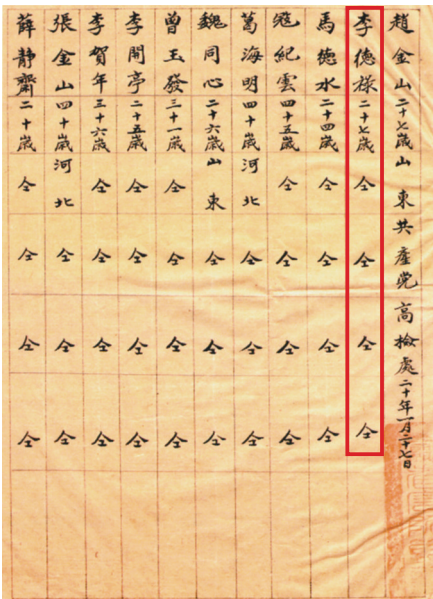 趙金山二十七歲山東共產党高檢處二十年一月二十七日
李德祿二十七歲仝仝仝仝
馬德水二十四歲仝仝仝仝
寇紀雲四十五歲仝仝仝仝
葛海明四十歲河北仝仝仝
魏同心二十六歲山東仝仝仝
曾玉發三十一歲仝仝仝仝
李開亭二十五歲仝仝仝仝
李賀年三十六歲仝仝仝仝
張金山四十歲河北仝仝仝
薛靜齋二十歲仝仝仝仝